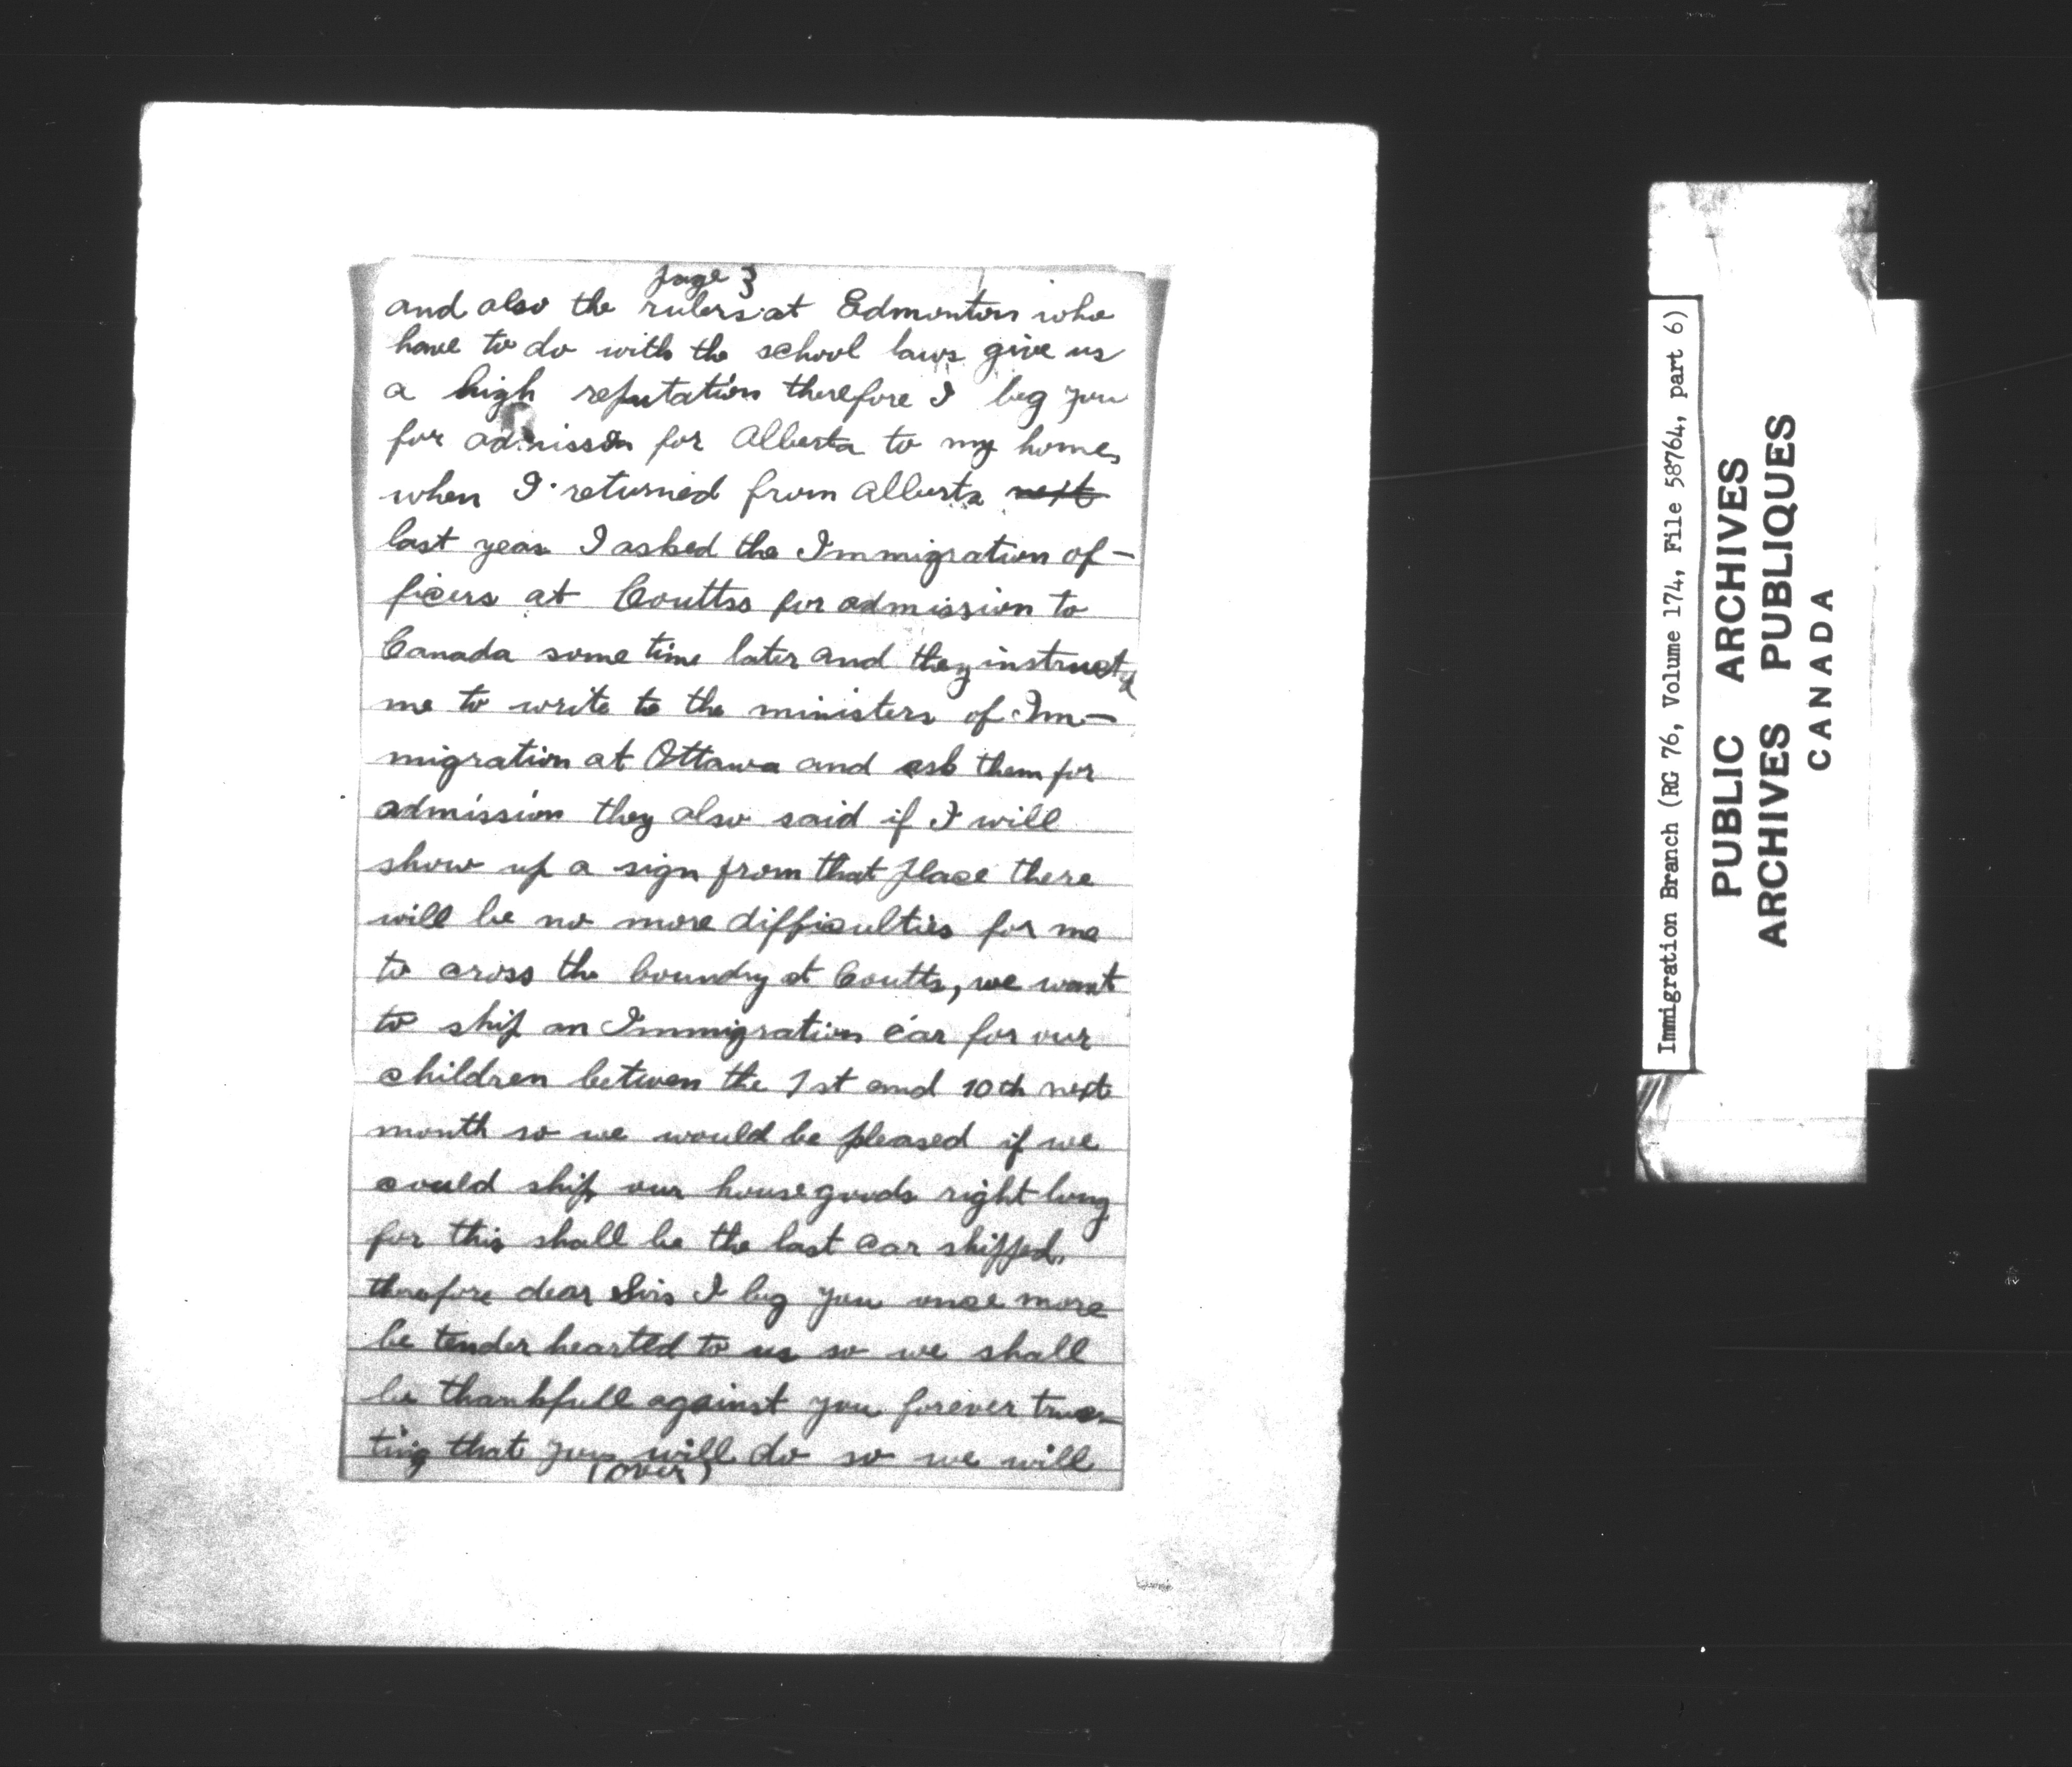 page 3
and also the rulers at Edmonton who
have to do with the school laws give us
a high reputation therefore I beg you
for admisson for Alberta to my home,
when I returned from Alberta next
last year I asked the Immigration of-
ficers at Couttss for admission to
Canada some time later and they instructed
me to write to the ministers of Im-
migration at Ottawa and ask them for
admission they also said if I will
show up a sign from that place there
will be no more difficulties for me
to cross the boundry at Coutts, we want
to ship an Immigration car for our
children between the 1st and 10th next
month so we would be pleased if we
could ship our housegoods right long
for this shall be the last car shipped,
therefore dear Sirs I beg you once more
be tender hearted to us so we shall
be thankfull against you forever trus-
ting that you will do so we will
(over)
Immigration Branch (RG 76, Volume 174, File 58764, part 6)
PUBLIC ARCHIVES
ARCHIVES PUBLIQUES
CANADA